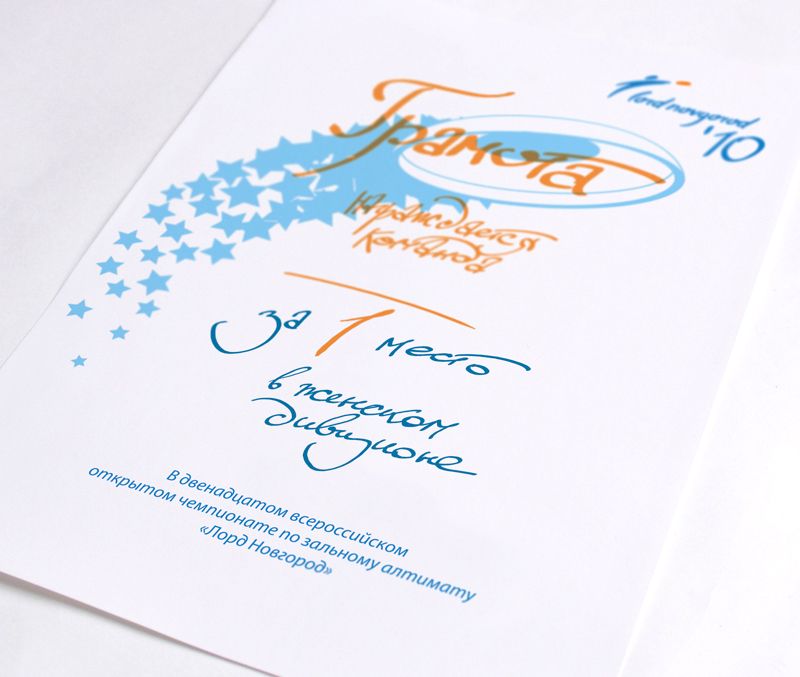 lord novgorod
'10
Грамота
Награждается
команда
за 1 место
в женском
дивизионе
В двенадцатом всероссийском
открытом чемпионате по зальному алтимату
«Лорд Новгород»